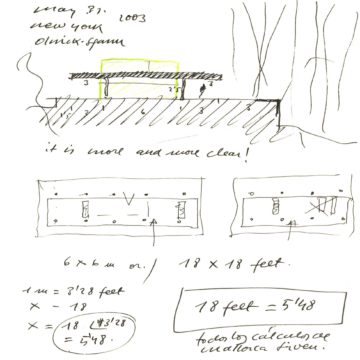 may 31. 2003
new york
olnick-spanu
3 2'5 3
1'5 3 6 3 3
it is more and more clear!
6 x 6 m or / 18 x 18 feet.
1 m = 3'28 feet
x - 18
x = 18 3'28
= 5'48
18 feet = 5'48
todos los cálculos de
mallorca sirven.